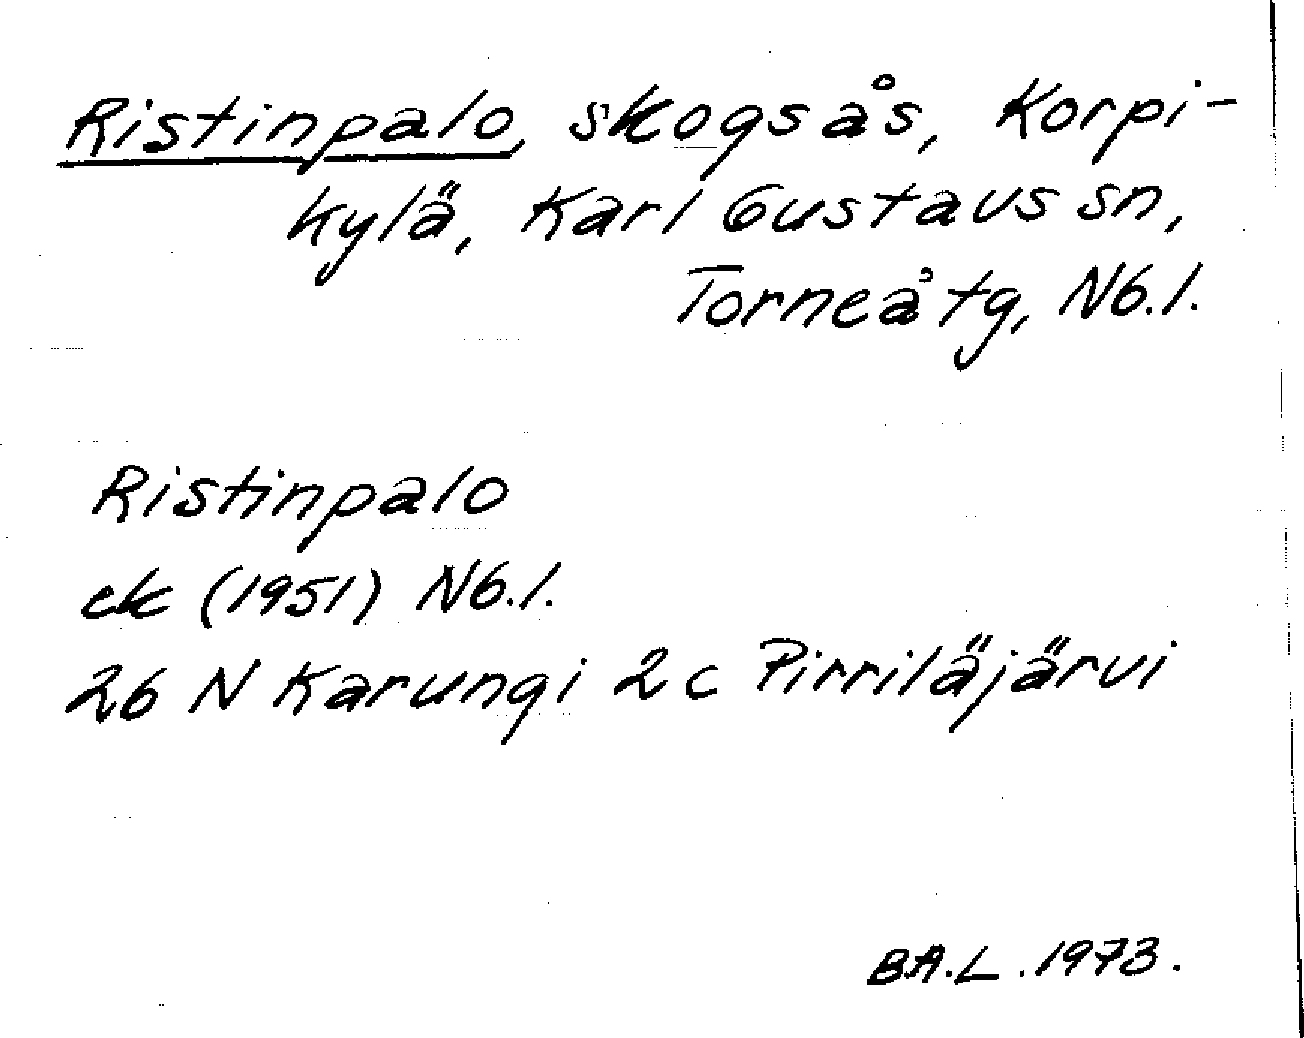 Ristinpalo, skogsås, Korpi-
kylä, Karl Gustavs sn,
Torneå tg, Nb.l.
Ristinpalo
ek (1951) Nb.l.
26 N Karungi 2 c Pirriläjärvi
B.A.L. 1973.